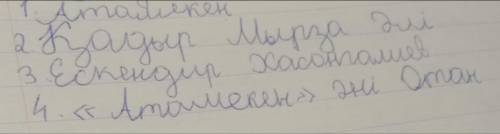 1. Атамекен
2 Қадыр Мырза Әлі
3. Ескендир Хасанғалиев
4. «Атамекен» әні Отан